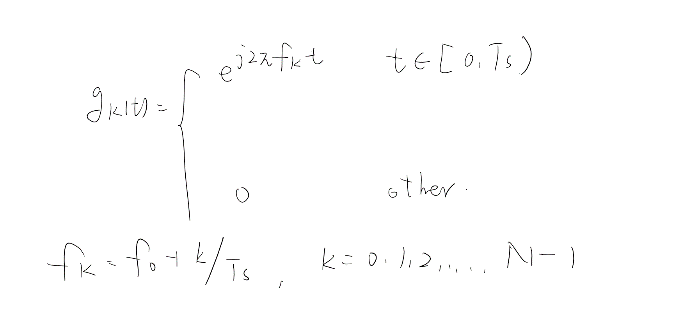 g_k(t) = { e^{j2πf_k t}   t ∈ [0, T_s)
0   other.
f_k = f_0 + k/T_s , k = 0, 1, 2, ..., N-1